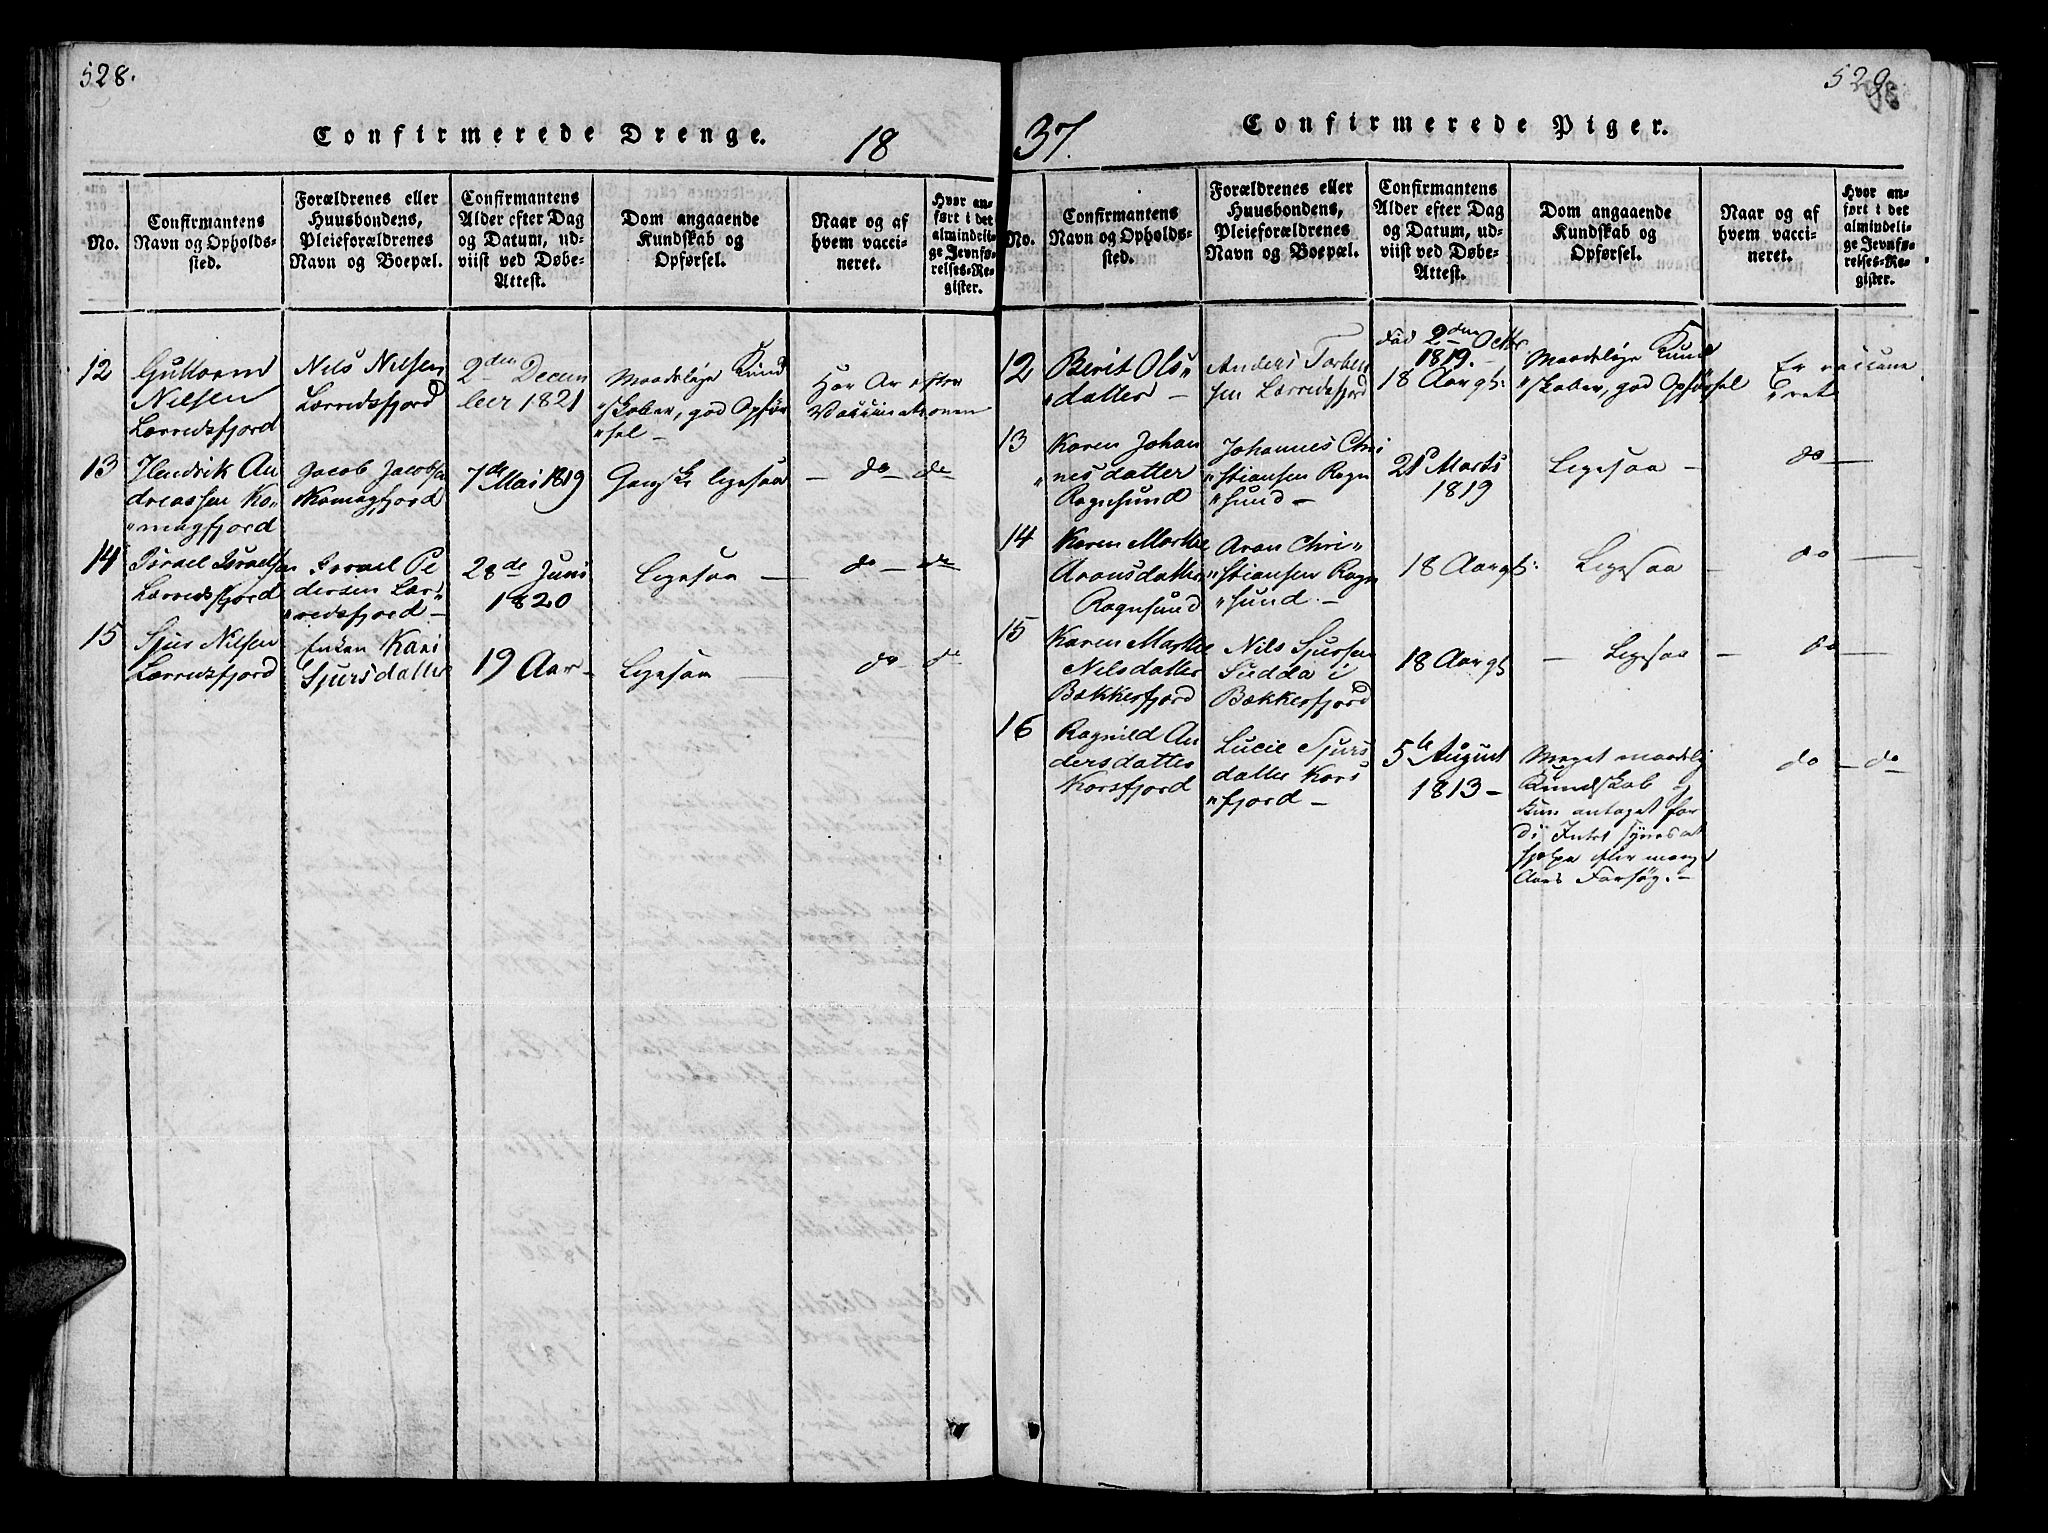 528.
Confirmerede Drenge. 18
No.
Confirmantens
Navn og Opholds-
sted.
Forældrenes eller
Huusbondens,
Pleieforældrenes
Navn og Boepæl.
Confirmantens
Alder efter Dag
og Datum, ud-
viist ved Døbe-
Attest.
Dom angaaende
Kundskab og
Opførsel.
Naar og af
hvem vacci-
neret.
Hvor an-
ført i det
almindeli-
ge Jevnfø-
relses-Re-
gister.
12
Guttorm
Nilsen
Lærredsfjord
Nils Nilsen
Lærredsfjord
2den Decem
ber 1821
Maadelige Kund
"skaber, god Opfør
"sel -
Har Ar efter
Vaccinationen
13
Hendrik An
dreassen Ko-
"magfjord
Jacob Jacobsen
Komagfjord
7de Mai 1819
Ganske ligesaa
- do - do
14
Israel Israelsen
Lærredsfjord
Israel Pe
dersen Lær-
"redsfjord -
28de Juni
1820
Ligesaa -
do - do
15
Sjur Nilsen
Lærredsfjord
Enken Kari
Sjursdatter
19 Aar -
Ligesaa -
do - do
529
37.
Confirmerede Piger.
No.
Confirmantens
Navn og Opholds-
sted.
Forældrenes eller
Huusbondens,
Pleieforældrenes
Navn og Boepæl.
Confirmantens
Alder efter Dag
og Datum, ud-
viist ved Døbe-
Attest.
Dom angaaende
Kundskab og
Opførsel.
Naar og af
hvem vacci-
neret.
Hvor an-
ført i det
almindeli-
ge Jevnfø-
relses-Re-
gister.
12
Berit Ols"
"datter -
Anders Torben
sen Lærredsfjord
fød 2den Octbr
1819. -
18 Aar gl:
Maadelige Kund
"skaber, god Opførsel
Er vaccine
"ret
13
Karen Johan
"nesdatter
Rognsund
Johannes Chri
"stiansen Rogn
"sund -
21 Marts
1819
Ligesaa -
do -
14
Karen Marthe
Aronsdatter
Rognsund
Aron Chri"
"stiansen Rogn
"sund. -
18 Aar gl:
Ligesaa -
do -
15
Karen Marthe
Nilsdatter
Bækkerfjord
Nils Sjursen
Sudda i
Bækkerfjord
18 Aar gl
- Ligesaa -
do -
16
Ragnild An
dersdatter
Korsfjord
Lucie Sjurs
datter Kors
"fjord -
5te August
1813 -
Meget maadelig
Kundskab og
kun antaget for
di Intet synes at
hjelpe efter mange
Aars Forsøg. -
do - do